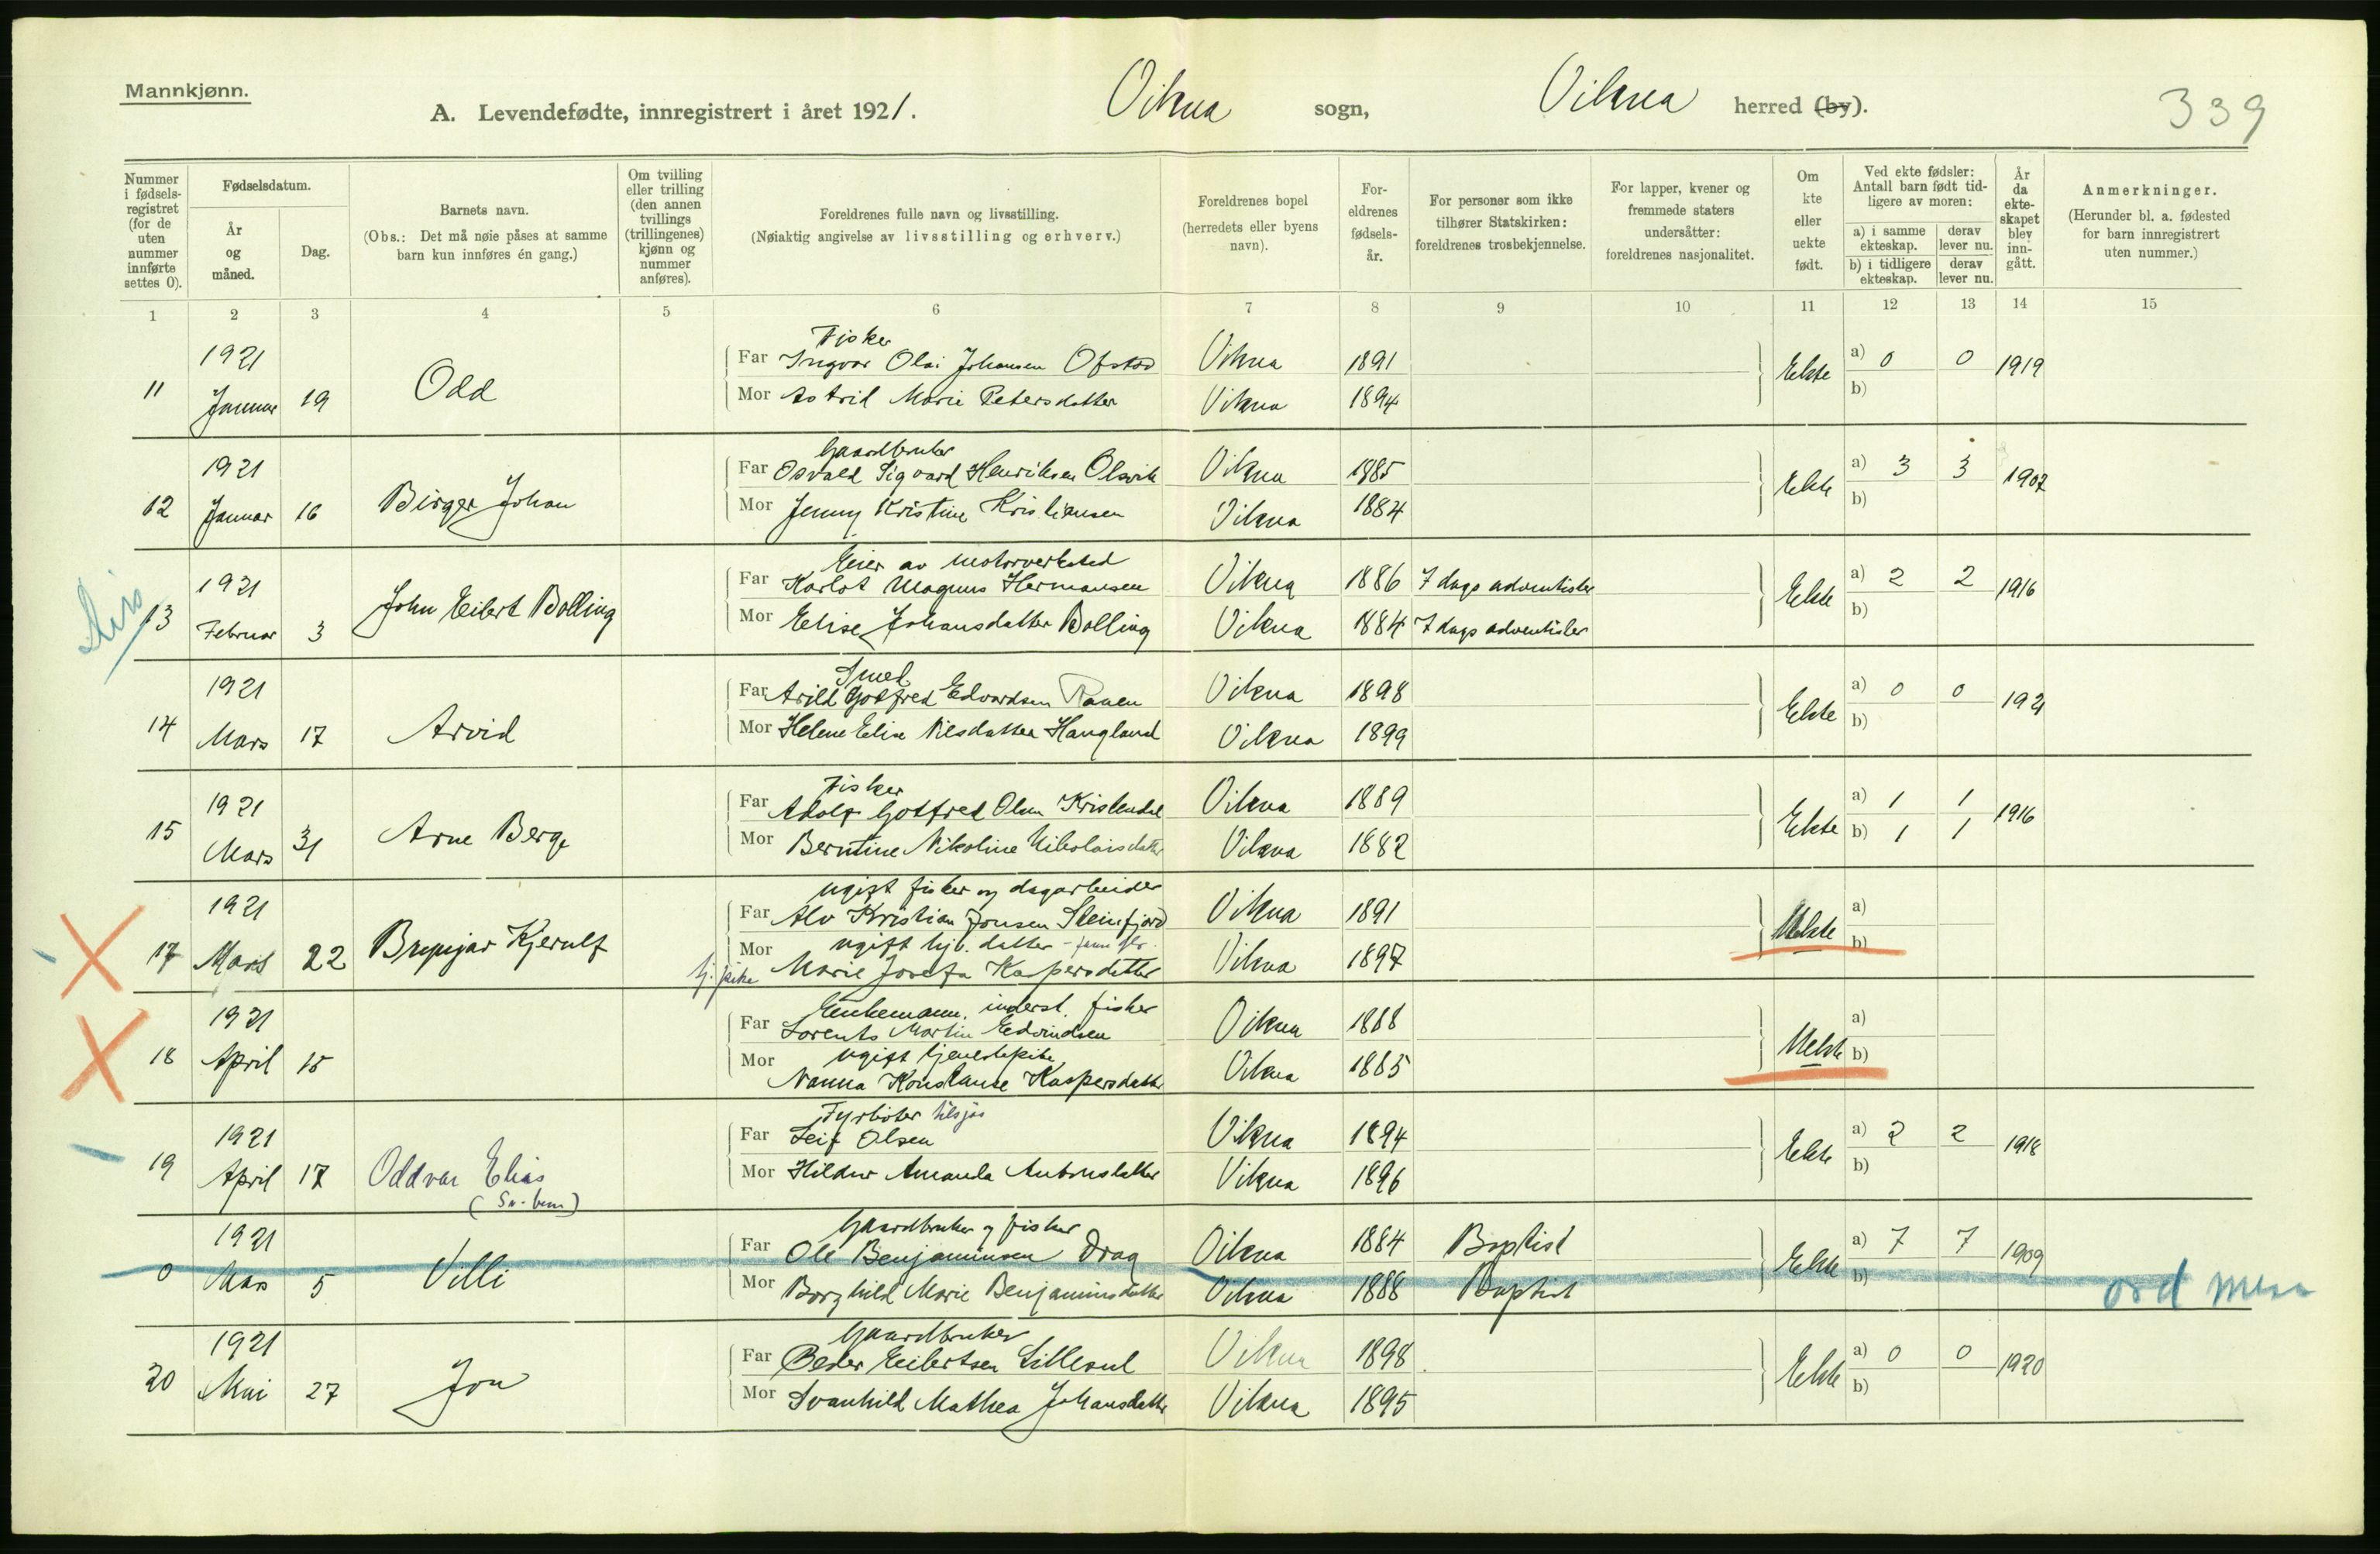 Mannkjønn.
A. Levendefødte, innregistrert i året 1921. Vikna sogn, Vikna herred (by).
339
Nummer i fødsels-registret (for de uten nummer innførte settes 0).
Fødselsdatum.
År og måned.
Dag.
Barnets navn.
(Obs.: Det må nøie påses at samme barn kun innføres én gang.)
Om tvilling eller trilling (den annen tvillings (trillingenes) kjønn og nummer anføres).
Foreldrenes fulle navn og livsstilling.
(Nøiaktig angivelse av livsstilling og erhverv.)
Foreldrenes bopel
(herredets eller byens navn).
For-eldrenes fødsels-år.
For personer som ikke tilhører Statskirken: foreldrenes trosbekjennelse.
For lapper, kvener og fremmede staters undersåtter: foreldrenes nasjonalitet.
Om kte eller uekte født.
Ved ekte fødsler: Antall barn født tid-ligere av moren:
a) i samme ekteskap.
b) i tidligere ekteskap.
derav lever nu.
derav lever nu.
År da ekte-skapet blev inn-gått.
Anmerkninger.
(Herunder bl. a. fødested for barn innregistrert uten nummer.)
1 2 3 4 5 6 7 8 9 10 11 12 13 14 15
Fisker
1921 Far Ingvar Olai Johansen Ofstad Vikna 1891 Ekte a) 0 0 1919
11 Januar 19 Odd Mor Astrid Marie Petersdatter Vikna 1894 b)
Gaardbruker
1921 Far Osvald Sigvard Henriksen Olsvik Vikna 1885 Ekte a) 3 3 1907
12 Januar 16 Birger Johan Mor Jenny Kristine Kristiansen Vikna 1884 b)
Eier av motorverksted
1921 Far Karlot Magnus Hermansen Vikna 1886 7 dags adventister Ekte a) 2 2 1916
13 Februar 3 John Eilert Bolling Mor Elise Johansdatter Bolling Vikna 1884 7 dags adventister b)
Smed
1921 Far Arild Gotfred Edvardsen Ramen Vikna 1898 Ekte a) 0 0 1921
14 Mars 17 Arvid Mor Helene Elise Nilsdatter Haugland Vikna 1899 b)
Fisker
1921 Far Adolf Gotfred Olsen Vikna 1889 Ekte a) 1 1 1916
15 Mars 31 Arne Berge Mor Berntine Nikoline Nikolaisdatter Vikna 1882 b) 1 1
ugift fisker og dagarbeider
1921 Far Alv Kristian Jonsen Steinfjord Vikna 1891 Uekte a)
Mor ugift hj. datter
17 Mars 22 Brynjar Kjerulf Marie Josefa Kaspersdatter Vikna 1897 b)
Enkemann, inderst, fisker
1921 Far Lorents Martin Edvindsen Vikna 1888 Uekte a)
Mor ugift tjenestepike
18 April 15 Nanna Konstanse Kaspersdatter Vikna 1885 b)
Fyrbøter tilsjøs
1921 Far Leif Olsen Vikna 1894 Ekte a) 2 2 1918
19 April 17 Oddvar Elias Mor Hildur Amanda Antonsdatter Vikna 1896 b)
Gaardbruker og fisker
1921 Far Ole Benjaminsen Drag Vikna 1884 Baptist Ekte a) 7 7 1909
0 Mars 5 Villi Mor Borghild Marie Benjaminsdatter Vikna 1888 Baptist b)
Gaardbruker
1921 Far Peder Eilertsen Lillesul Vikna 1898 Ekte a) 0 0 1920
20 Mai 27 Jon Mor Svanhild Mathea Johansdatter Vikna 1895 b)